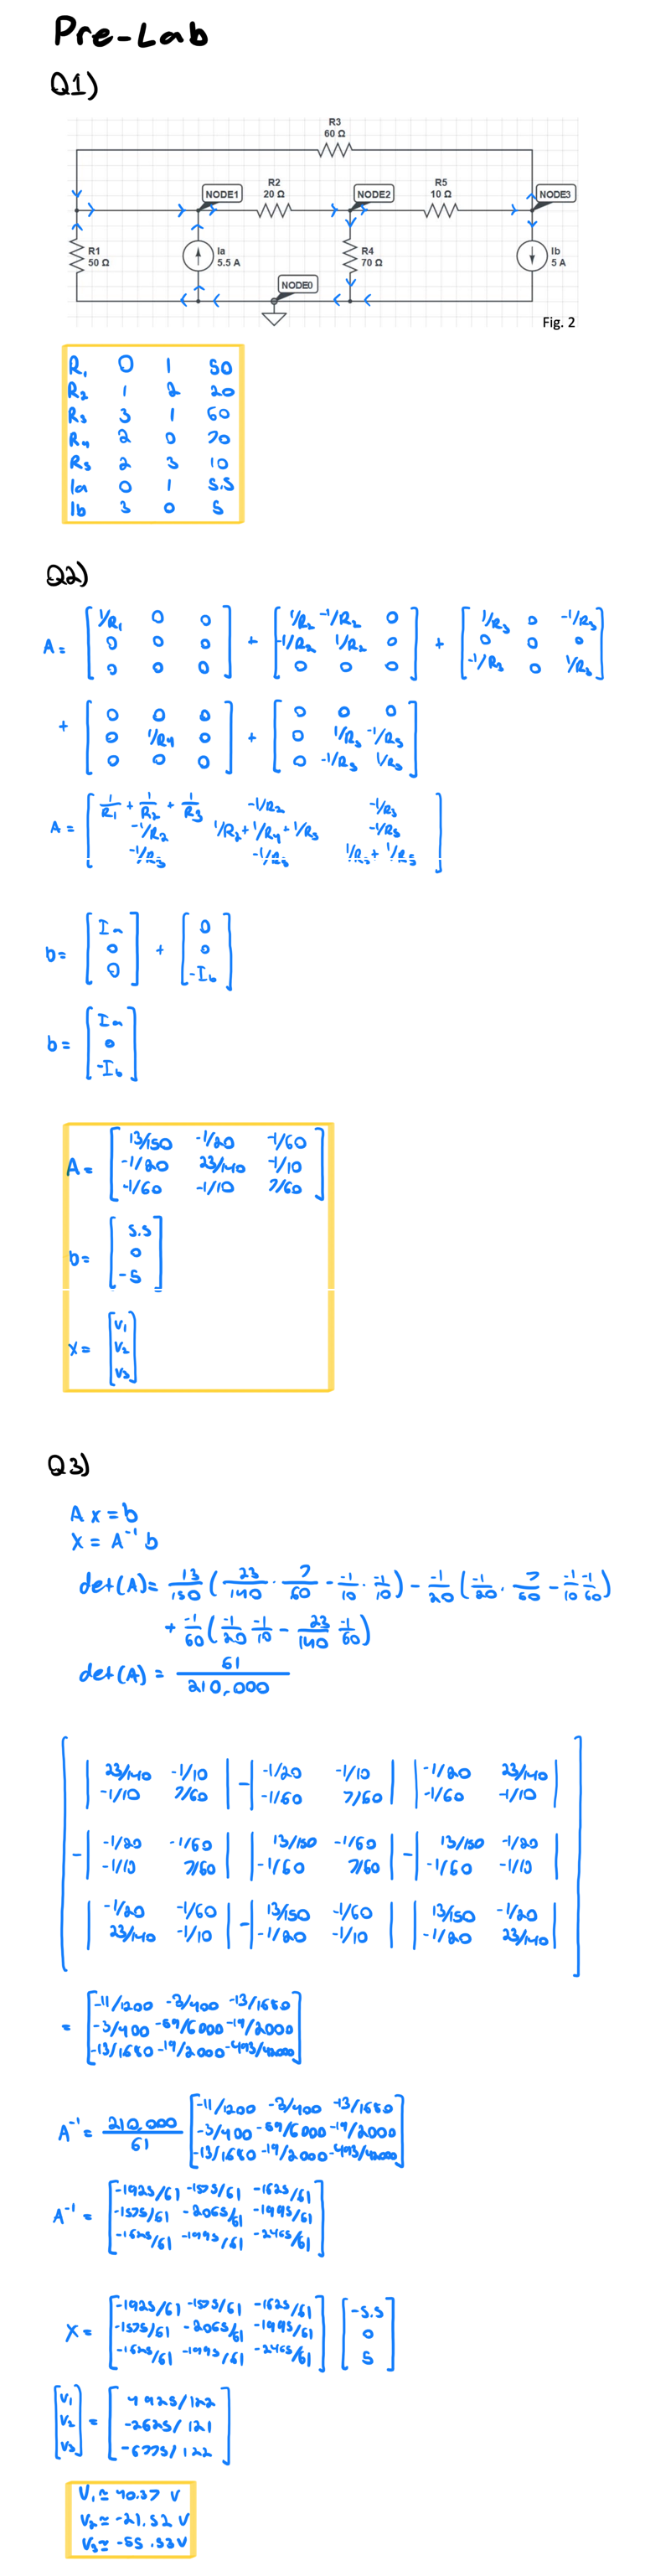 Pre-Lab
Q1)
R3
60 Ω
R2
20 Ω
R5
10 Ω
NODE1
NODE2
NODE3
R1
50 Ω
Ia
5.5 A
R4
70 Ω
Ib
5 A
NODE0
Fig. 2
R₁ 0 1 50
R₂ 1 2 20
R₃ 3 1 60
R₄ 2 0 70
R₅ 2 3 10
Ia 0 1 5.5
Ib 3 0 5
Q2)
A = [1/R₁ 0 0; 0 0 0; 0 0 0] + [1/R₂ -1/R₂ 0; -1/R₂ 1/R₂ 0; 0 0 0] + [1/R₃ 0 -1/R₃; 0 0 0; -1/R₃ 0 1/R₃]
+ [0 0 0; 0 1/R₄ 0; 0 0 0] + [0 0 0; 0 1/R₅ -1/R₅; 0 -1/R₅ 1/R₅]
A = [1/R₁ + 1/R₂ + 1/R₃ -1/R₂ -1/R₃; -1/R₂ 1/R₂ + 1/R₄ + 1/R₅ -1/R₅; -1/R₃ -1/R₅ 1/R₃ + 1/R₅]
b = [Ia; 0; 0] + [0; 0; -Ib]
b = [Ia; 0; -Ib]
A = [13/150 -1/20 -1/60; -1/20 23/140 -1/10; -1/60 -1/10 7/60]
b = [5.5; 0; -5]
x = [V₁; V₂; V₃]
Q3)
A x = b
x = A⁻¹ b
det(A) = 13/150 (23/140 · 7/60 - -1/10 · -1/10) - -1/20 (-1/20 · 7/60 - -1/10 -1/60)
+ -1/60 (-1/20 -1/10 - 23/140 -1/60)
det(A) = 61/210,000
[|23/140 -1/10; -1/10 7/60| -|-1/20 -1/10; -1/60 7/60| |-1/20 23/140; -1/60 -1/10|
-|-1/20 -1/60; -1/10 7/60| |13/150 -1/60; -1/60 7/60| -|13/150 -1/20; -1/60 -1/10|
|-1/20 -1/60; 23/140 -1/10| -|13/150 -1/60; -1/20 -1/10| |13/150 -1/20; -1/20 23/140|]
= [-11/1200 -3/400 -13/1680; -3/400 -59/6000 -19/2000; -13/1680 -19/2000 -493/42000]
A⁻¹ = 210,000/61 [-11/1200 -3/400 -13/1680; -3/400 -59/6000 -19/2000; -13/1680 -19/2000 -493/42000]
A⁻¹ = [-1925/61 -1575/61 -1625/61; -1575/61 -2065/61 -1995/61; -1625/61 -1995/61 -2465/61]
X = [-1925/61 -1575/61 -1625/61; -1575/61 -2065/61 -1995/61; -1625/61 -1995/61 -2465/61] [-5.5; 0; 5]
[V₁; V₂; V₃] = [4925/122; -2625/121; -6775/122]
V₁ ≈ 40.37 V
V₂ ≈ -21.52 V
V₃ ≈ -55.53 V